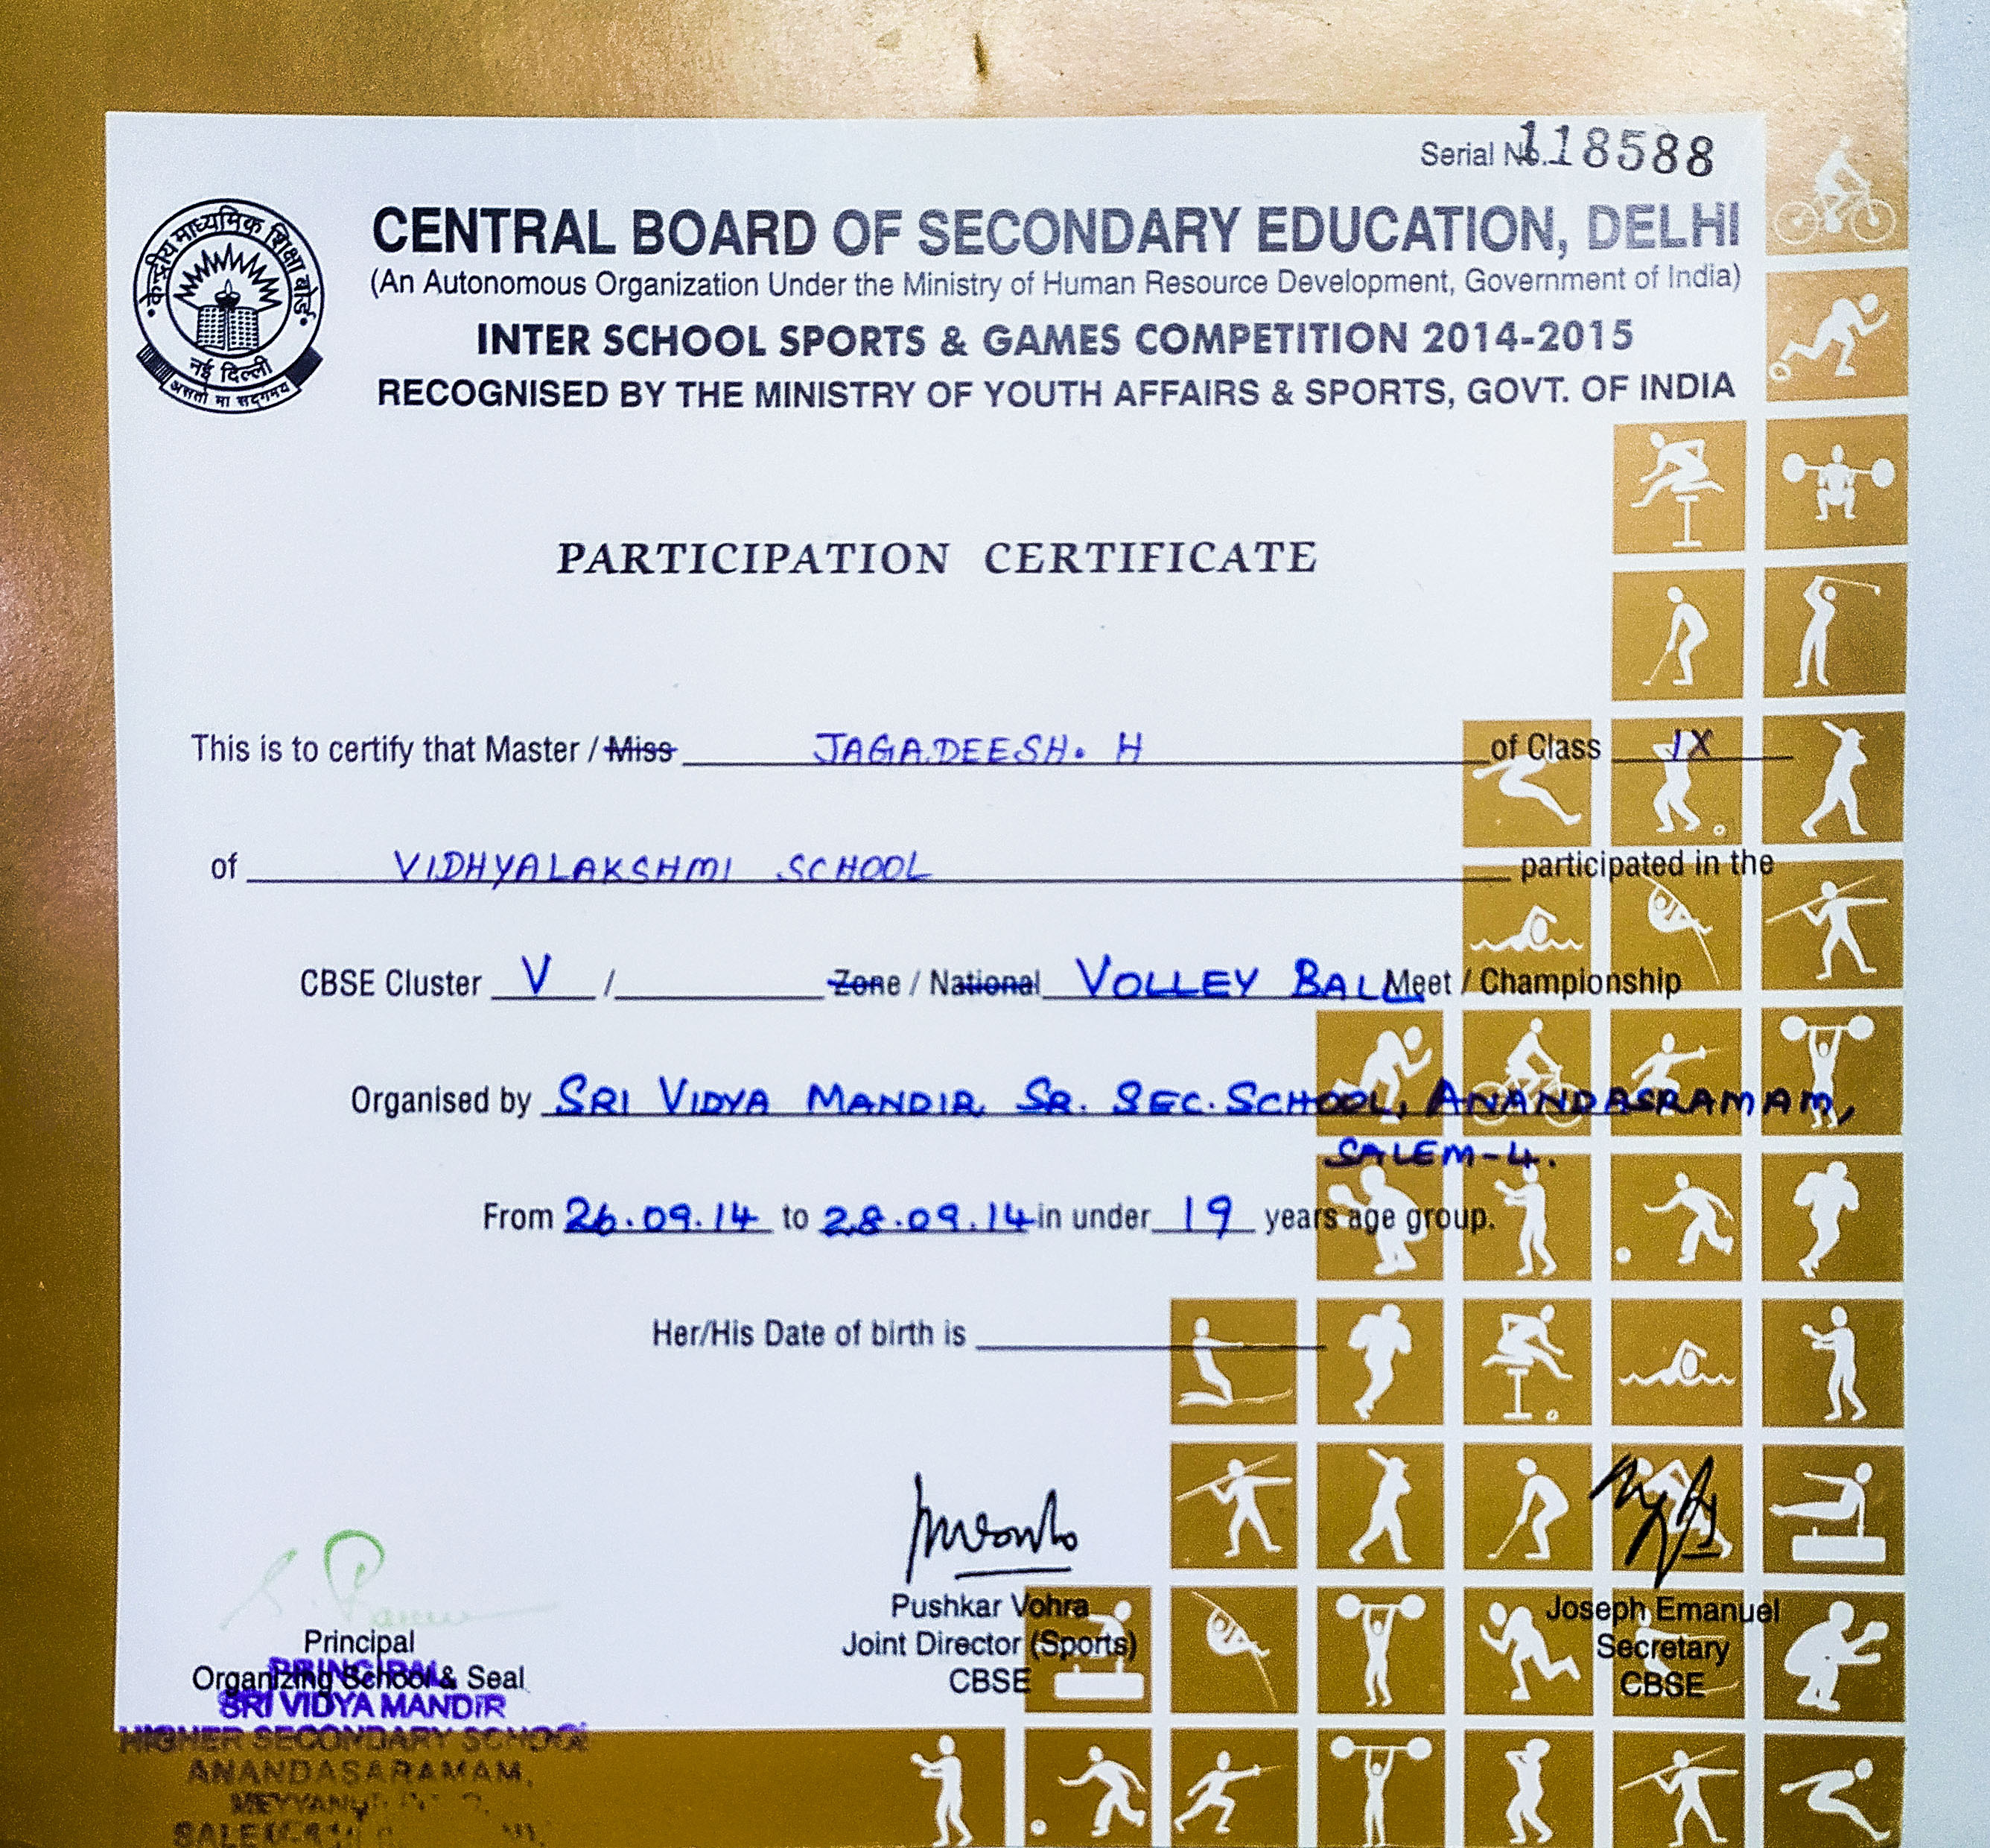 Serial No. 118588
केन्द्रीय माध्यमिक शिक्षा बोर्ड
नई दिल्ली
असतो मा सद्गमय
CENTRAL BOARD OF SECONDARY EDUCATION, DELHI
(An Autonomous Organization Under the Ministry of Human Resource Development, Government of India)
INTER SCHOOL SPORTS & GAMES COMPETITION 2014-2015
RECOGNISED BY THE MINISTRY OF YOUTH AFFAIRS & SPORTS, GOVT. OF INDIA
PARTICIPATION CERTIFICATE
This is to certify that Master / Miss JAGADEESH. H of Class IX
of VIDHYALAKSHMI SCHOOL participated in the
CBSE Cluster V / Zone / National VOLLEY BALL Meet / Championship
Organised by SRI VIDYA MANDIR SR. SEC. SCHOOL, ANANDASRAMAM,
SALEM-4.
From 26.09.14 to 28.09.14 in under 19 years age group.
Her/His Date of birth is
Pushkar Vohra
Joint Director (Sports)
CBSE
Joseph Emanuel
Secretary
CBSE
Principal
Organizing School & Seal
PRINCIPAL
SRI VIDYA MANDIR
HIGHER SECONDARY SCHOOL
ANANDASARAMAM,